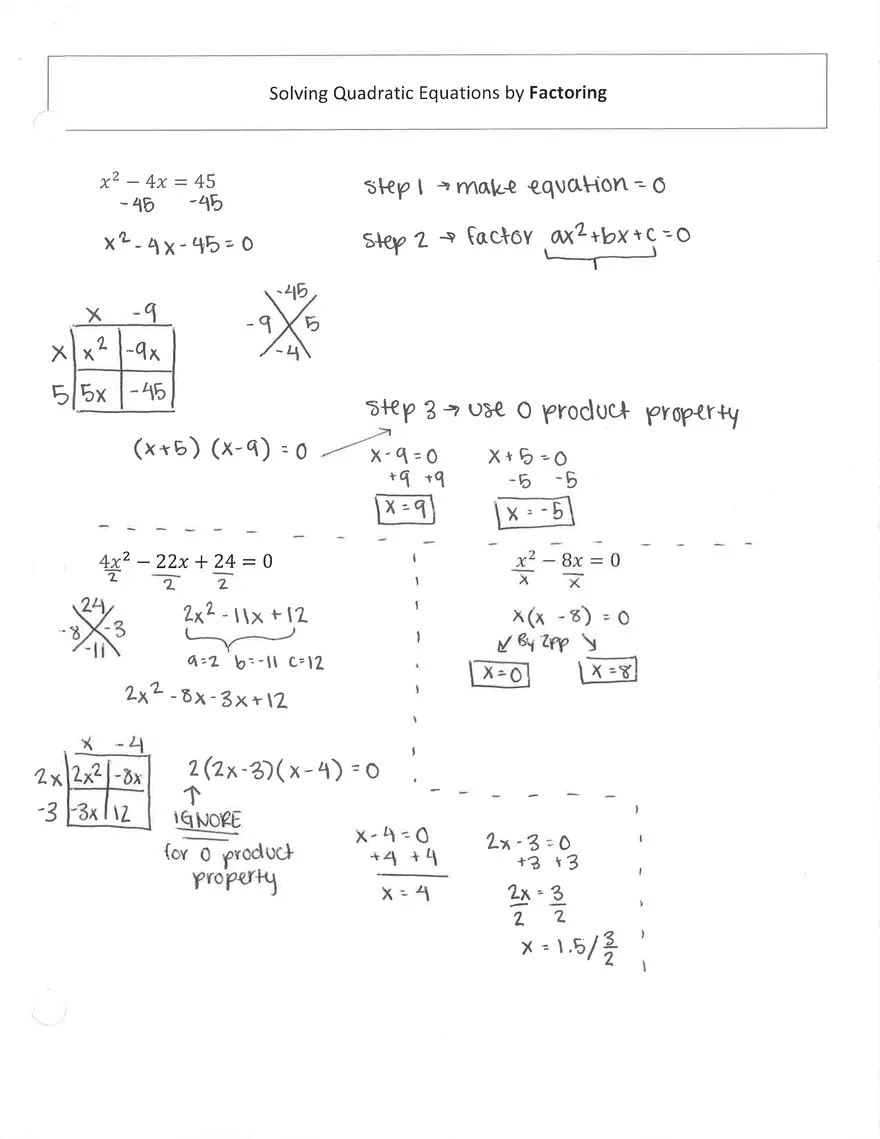 Solving Quadratic Equations by Factoring
x² − 4x = 45
-45 -45
x² - 4x - 45 = 0
Step 1 → make equation = 0
Step 2 → factor ax²+bx+c = 0
-45
-9 5
-4
x -9
x x² -9x
5 5x -45
(x+5) (x-9) = 0
Step 3 → use 0 product property
x-9=0
+9 +9
x=9
x+5=0
-5 -5
x = -5
4x² − 22x + 24 = 0
2 2 2
24
-8 -3
-11
2x² - 11x + 12
a=2 b=-11 c=12
2x² - 8x - 3x + 12
x -4
2x 2x² -8x
-3 -3x 12
2(2x-3)(x-4) = 0
↑
IGNORE
for 0 product
property
x-4=0
+4 +4
x = 4
2x-3=0
+3 +3
2x = 3
2 2
x = 1.5/3/2
x² − 8x = 0
x x
x(x -8) = 0
↙ By ZPP ↘
x=0 x=8